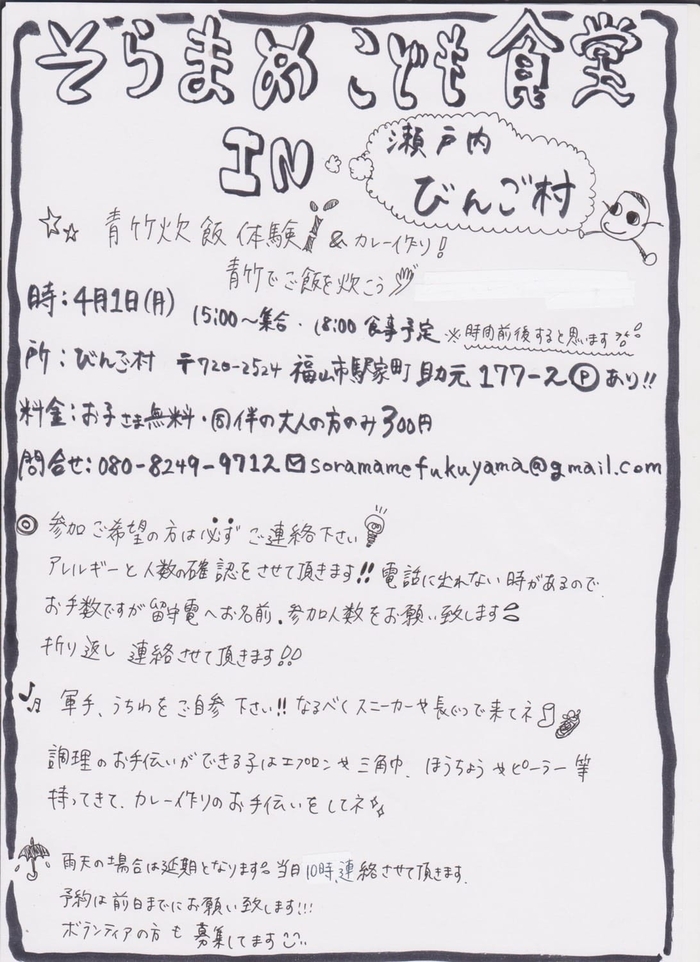 そらまめ こども食堂
IN 瀬戸内
びんご村
青竹炊飯体験 & カレー作り!
青竹でご飯を炊こう
時:4月1日(月) 15:00〜集合・18:00 食事予定 ※時間前後すると思います
所:びんご村 〒720-2524 福山市駅家町助元 177-2 Ⓟあり!!
料金:お子さま無料・同伴の大人の方のみ300円
問合せ:080-8249-9712 ✉ soramamefukuyama@gmail.com
◎ 参加ご希望の方は必ずご連絡下さい
アレルギーと人数の確認をさせて頂きます!! 電話に出れない時があるので
お手数ですが留守電へお名前、参加人数をお願い致します
折り返し 連絡させて頂きます!!
♪ 軍手、うちわをご自参下さい!! なるべくスニーカーや長ぐつで来てネ
調理のお手伝いができる子はエプロンや三角巾、ほうちょうやピーラー等
持ってきて、カレー作りのお手伝いをしてネ
雨天の場合は延期となります。当日10時、連絡させて頂きます。
予約は前日までにお願い致します!!!
ボランティアの方も募集してます